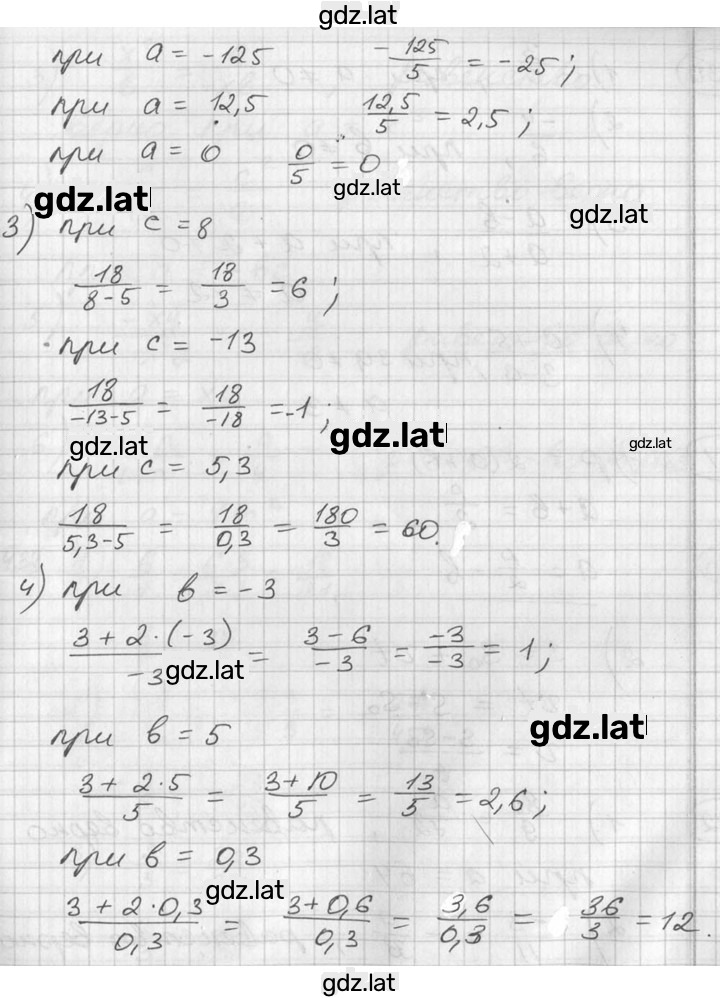 gdz.lat
при a = -125   -125/5 = -25;
при a = 12,5   12,5/5 = 2,5;
при a = 0   0/5 = 0
gdz.lat
gdz.lat
gdz.lat
3) при c = 8
18/(8-5) = 18/3 = 6;
при c = -13
18/(-13-5) = 18/-18 = -1;
gdz.lat
gdz.lat
gdz.lat
при c = 5,3
18/(5,3-5) = 18/0,3 = 180/3 = 60.
4) при в = -3
(3 + 2·(-3))/-3 = (3-6)/-3 = -3/-3 = 1;
gdz.lat
gdz.lat
при в = 5
(3 + 2·5)/5 = (3+10)/5 = 13/5 = 2,6;
при в = 0,3
gdz.lat
(3 + 2·0,3)/0,3 = (3+0,6)/0,3 = 3,6/0,3 = 36/3 = 12.
gdz.lat